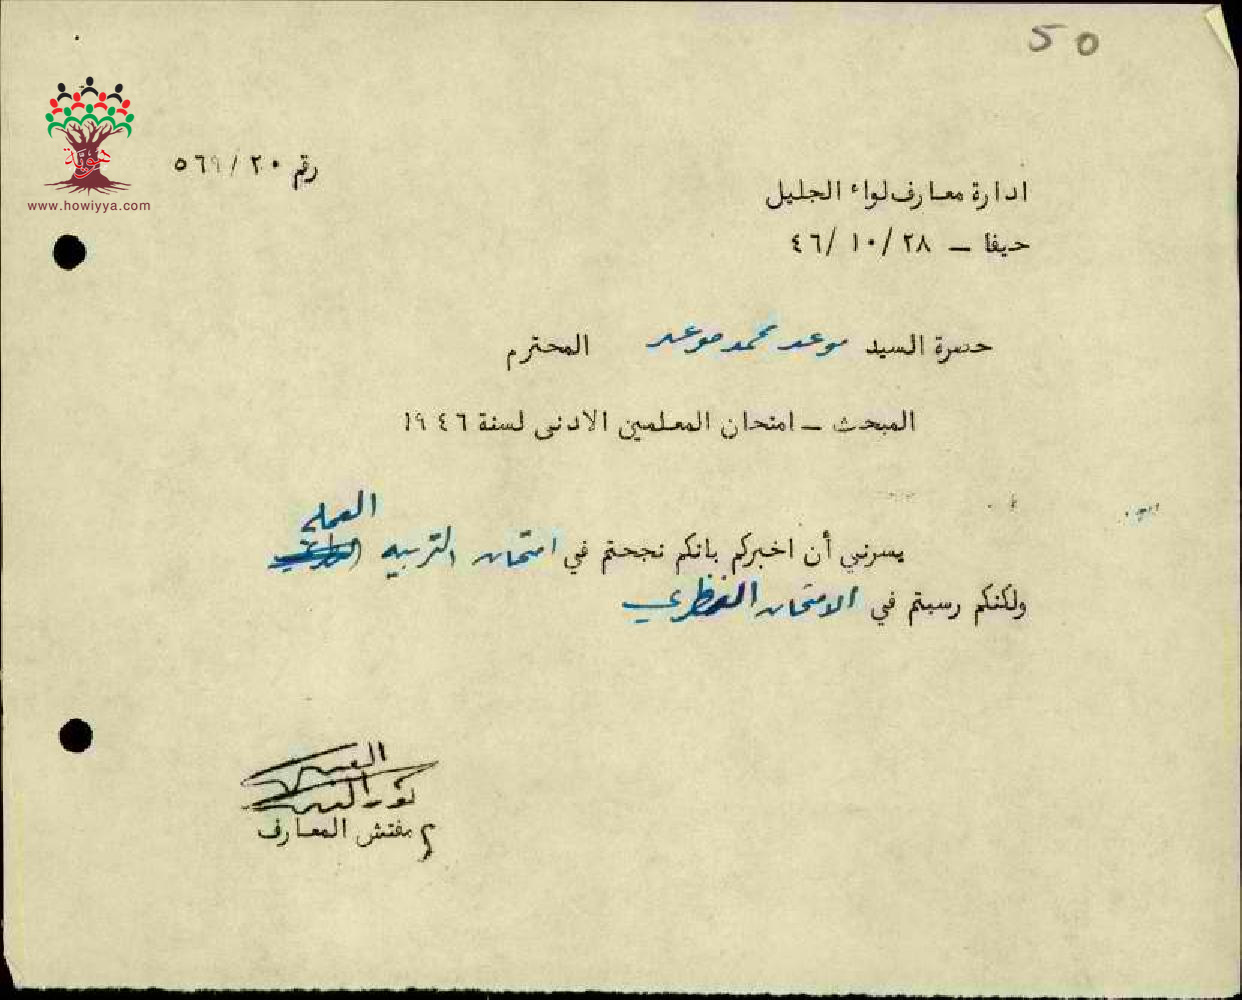 50
هوية
www.howiyya.com
رقم ٥٦٩/٢٠
ادارة معارف لواء الجليل
حيفا – ٢٨/١٠/٤٦
حضرة السيد موعد محمد موعد المحترم
المبحث – امتحان المعلمين الادنى لسنة ١٩٤٦
العملي
يسرني أن اخبركم بانكم نجحتم في امتحان التربيه
ولكنكم رسبتم في الامتحان النظري
مفتش المعارف